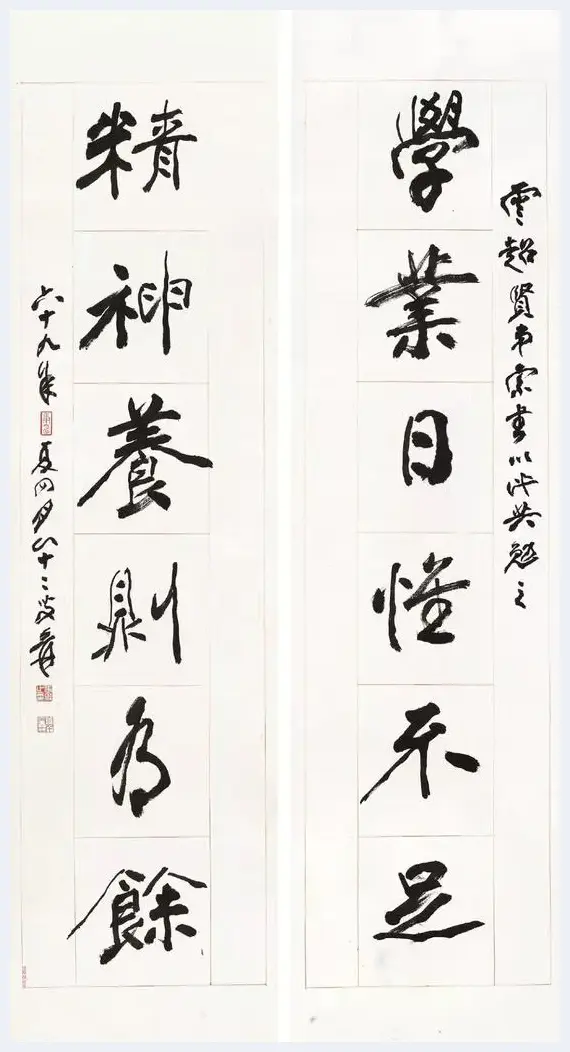 雲超賢弟索書以此共勉之
學業日惟不足
精神養則有餘
六十九年夏四月八十二叟爰